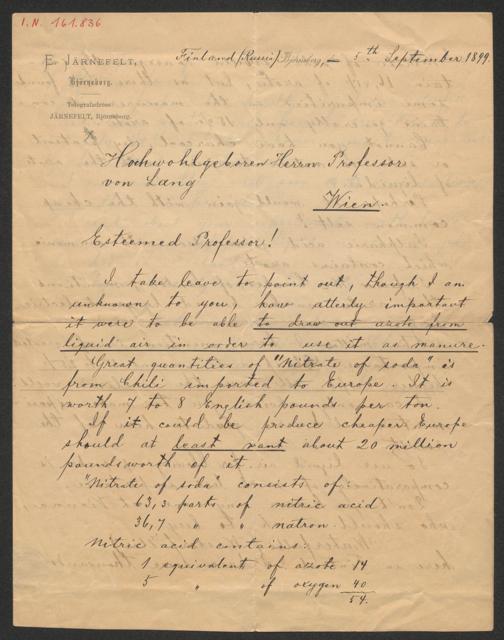 I.N. 161.836
E. JÄRNEFELT,
Björneborg.
Telegrafadress:
JÄRNEFELT, Björneborg.
Finland (Russi) Björneborg, 5th September 1899.
Hochwohlgeboren Herrn Professor
von Lang
Wien.
Esteemed Professor!
I take leave to point out, though I am
unknown to you, how utterly important
it were to be able to draw out azote from
liquid air in order to use it as manure.
Great quantities of "Nitrate of soda" is
from Chili imported to Europe. It is
worth 7 to 8 English pounds per ton.
If it could be produce cheaper, Europe
should at least want about 20 million
poundsworth of it.
"Nitrate of soda" consists of:
63,3 parts of nitric acid
36,7 " " natron
Nitric acid contains:
1 equivalent of azote 14
5 " of oxygen 40
54.